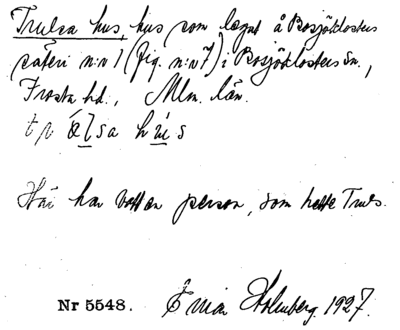 Trulsa hus, hus som legat å Bosjöklosters
säteri n:o 1 (fig. n:o 7) i Bosjöklosters sn.,
Frosta hd., Mlm. län.
hus
Här har bott en person, som hette Truls.
Nr 5548. Holmberg. 1927.